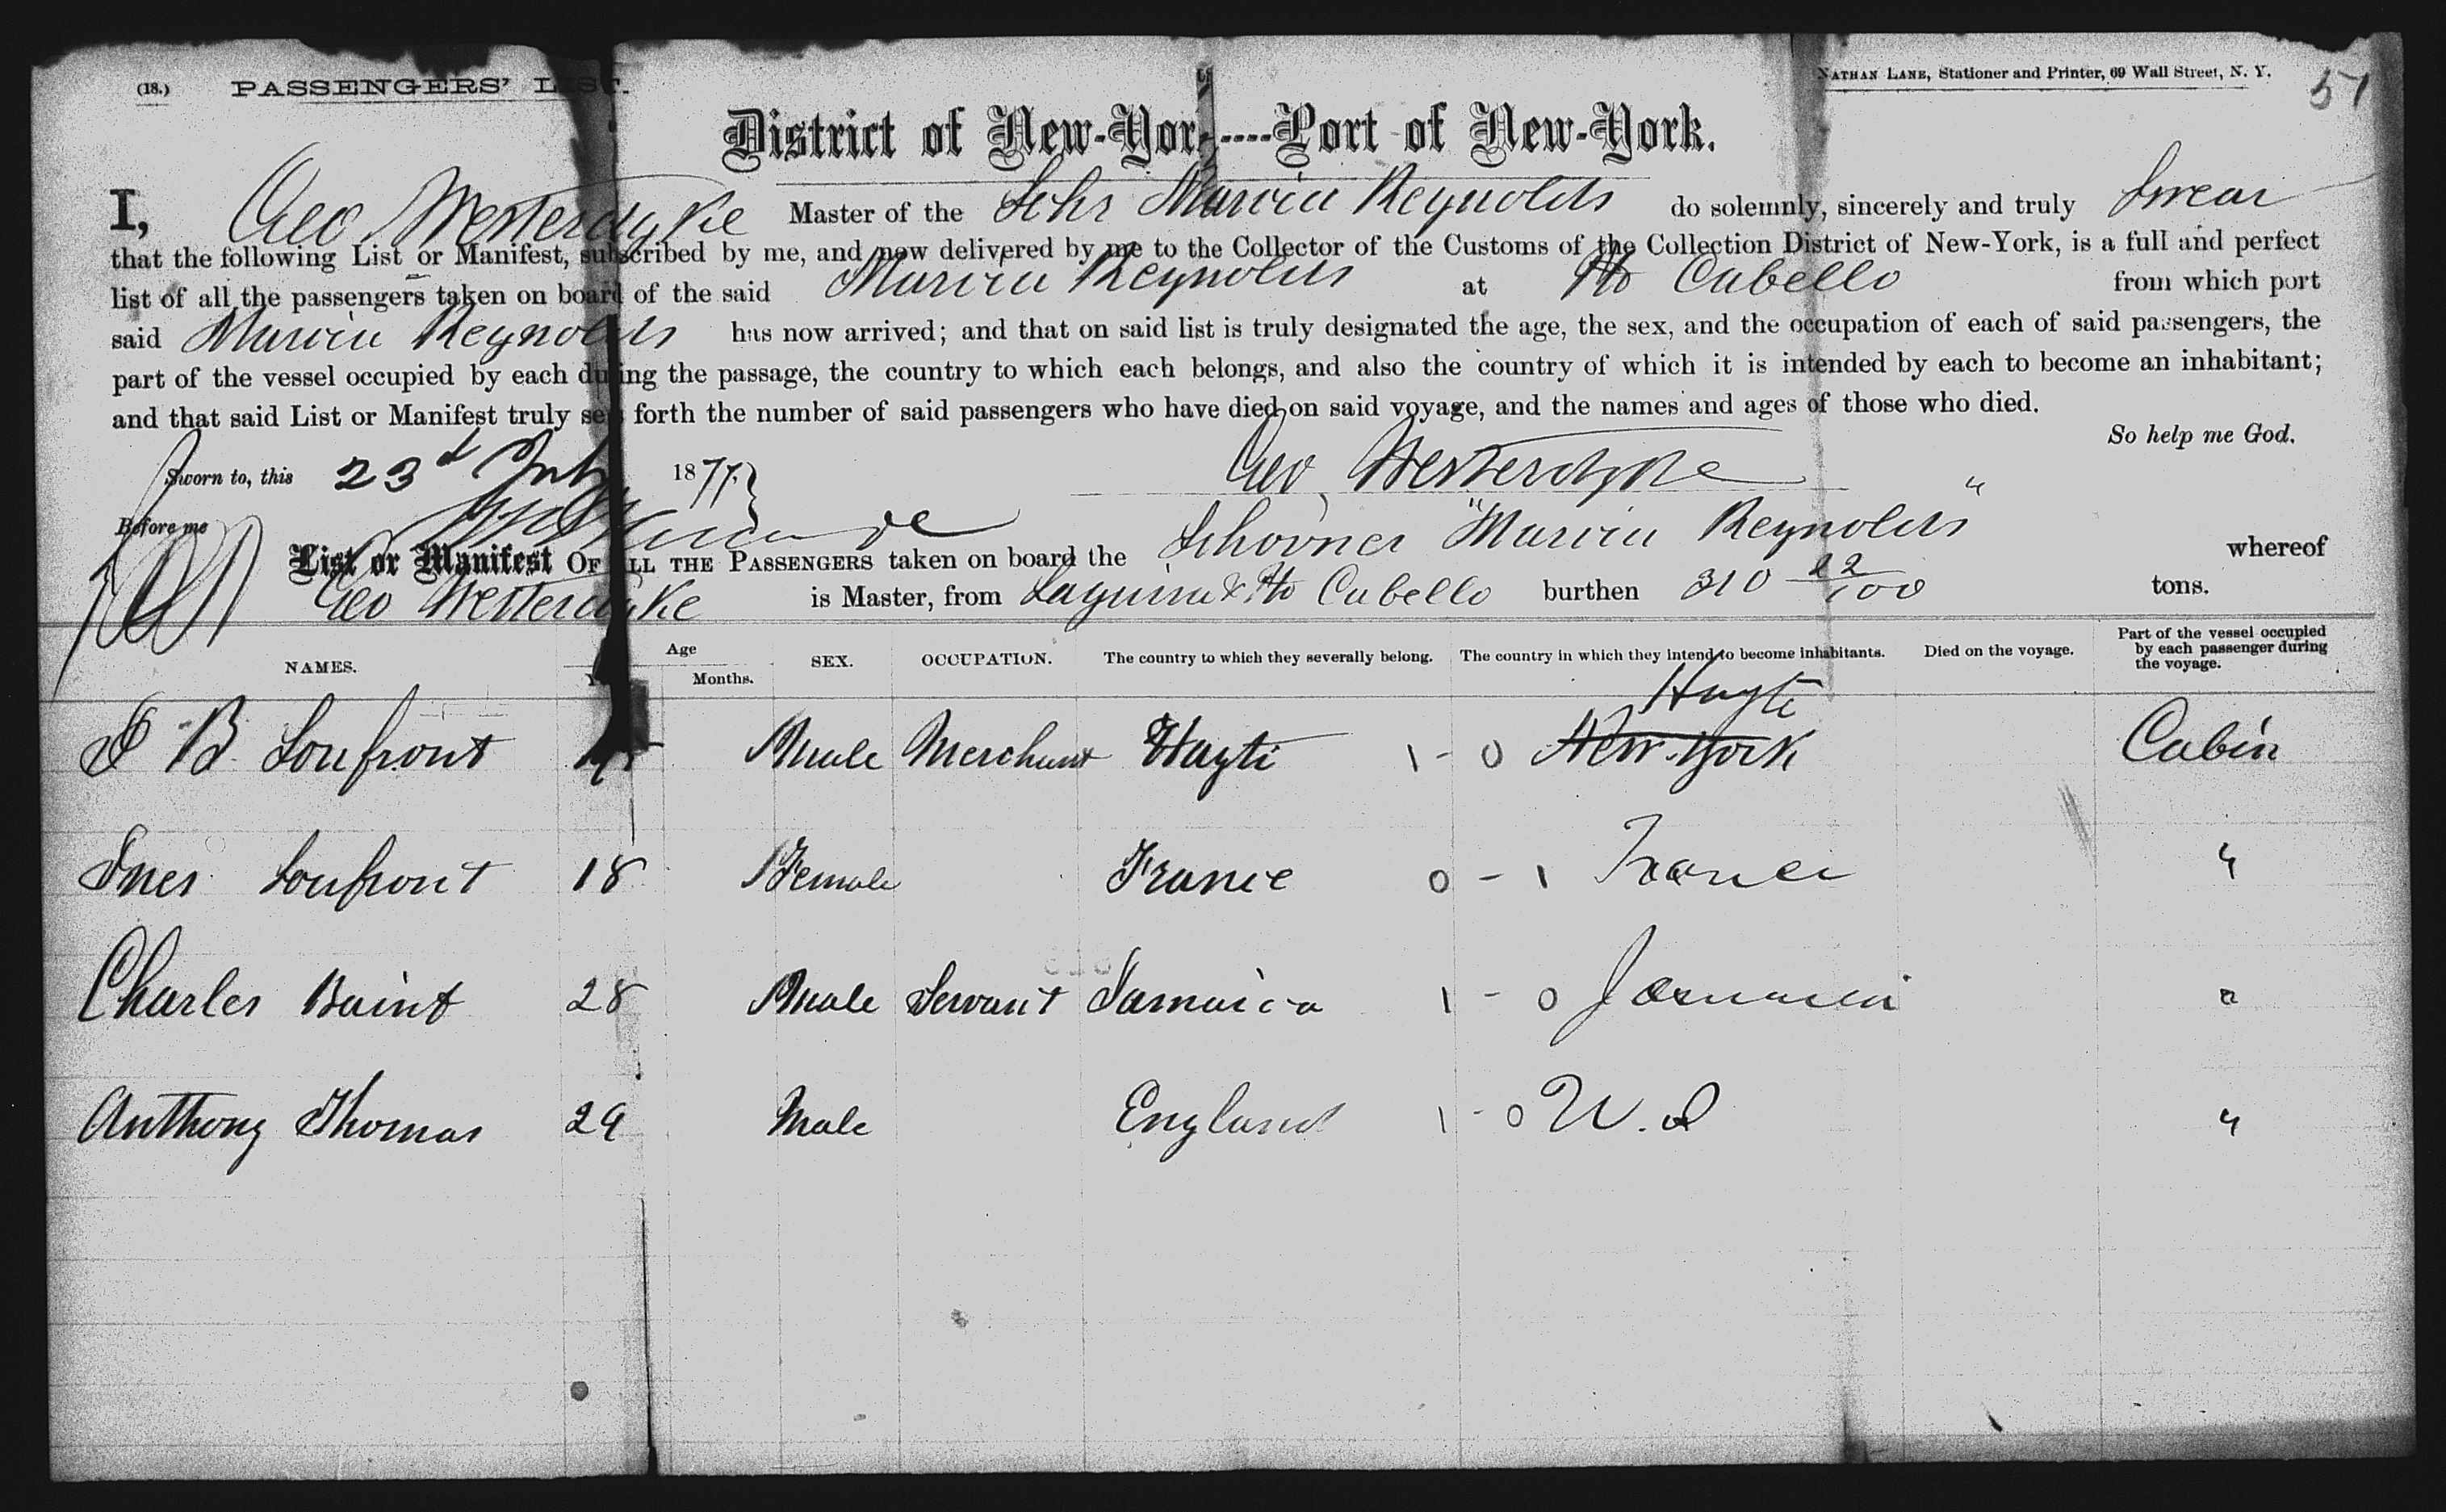 (18.) PASSENGERS' LIST.
NATHAN LANE, Stationer and Printer, 69 Wall Street, N. Y.
51
District of New-York----Port of New-York.
I, Geo Westerdyke Master of the Schr Marcia Reynolds do solemnly, sincerely and truly Swear
that the following List or Manifest, subscribed by me, and now delivered by me to the Collector of the Customs of the Collection District of New-York, is a full and perfect
list of all the passengers taken on board of the said Marcia Reynolds at Pto Cabello from which port
said Marcia Reynolds has now arrived; and that on said list is truly designated the age, the sex, and the occupation of each of said passengers, the
part of the vessel occupied by each during the passage, the country to which each belongs, and also the country of which it is intended by each to become an inhabitant;
and that said List or Manifest truly sets forth the number of said passengers who have died on said voyage, and the names and ages of those who died.
So help me God.
Sworn to, this 23d July 1877. Geo Westerdyke
Before me
List or Manifest OF ALL THE PASSENGERS taken on board the Schooner "Marcia Reynolds" whereof
Geo Westerdyke is Master, from Laguira & Pto Cabello burthen 310 22/100 tons.
NAMES. Age Months. SEX. OCCUPATION. The country to which they severally belong. The country in which they intend to become inhabitants. Died on the voyage. Part of the vessel occupied by each passenger during the voyage.
Hayti
B Loufront Male Merchant Hayti 1 - 0 New-York Cabin
Ines Loufront 18 Female France 0 - 1 France "
Charles Baint 28 Male Servant Jamaica 1 - 0 Jamaica "
Anthony Thomas 29 Male England 1 - 0 W. I "